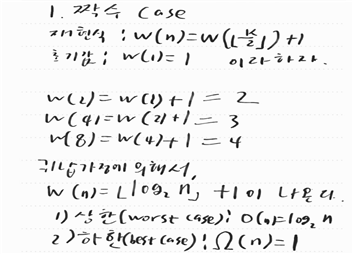 1. 짝수 case
재현식 : W(n)=W(⌊k/2⌋)+1
초기값 : W(1)=1 이라하자.
W(2)=W(1)+1=2
W(4)=W(2)+1=3
W(8)=W(4)+1=4
귀납가정에 의해서,
W(n)=⌊log₂n⌋+1이 나온다.
1) 상한(worst case): O(n)=log₂n
2) 하한(best case): Ω(n)=1